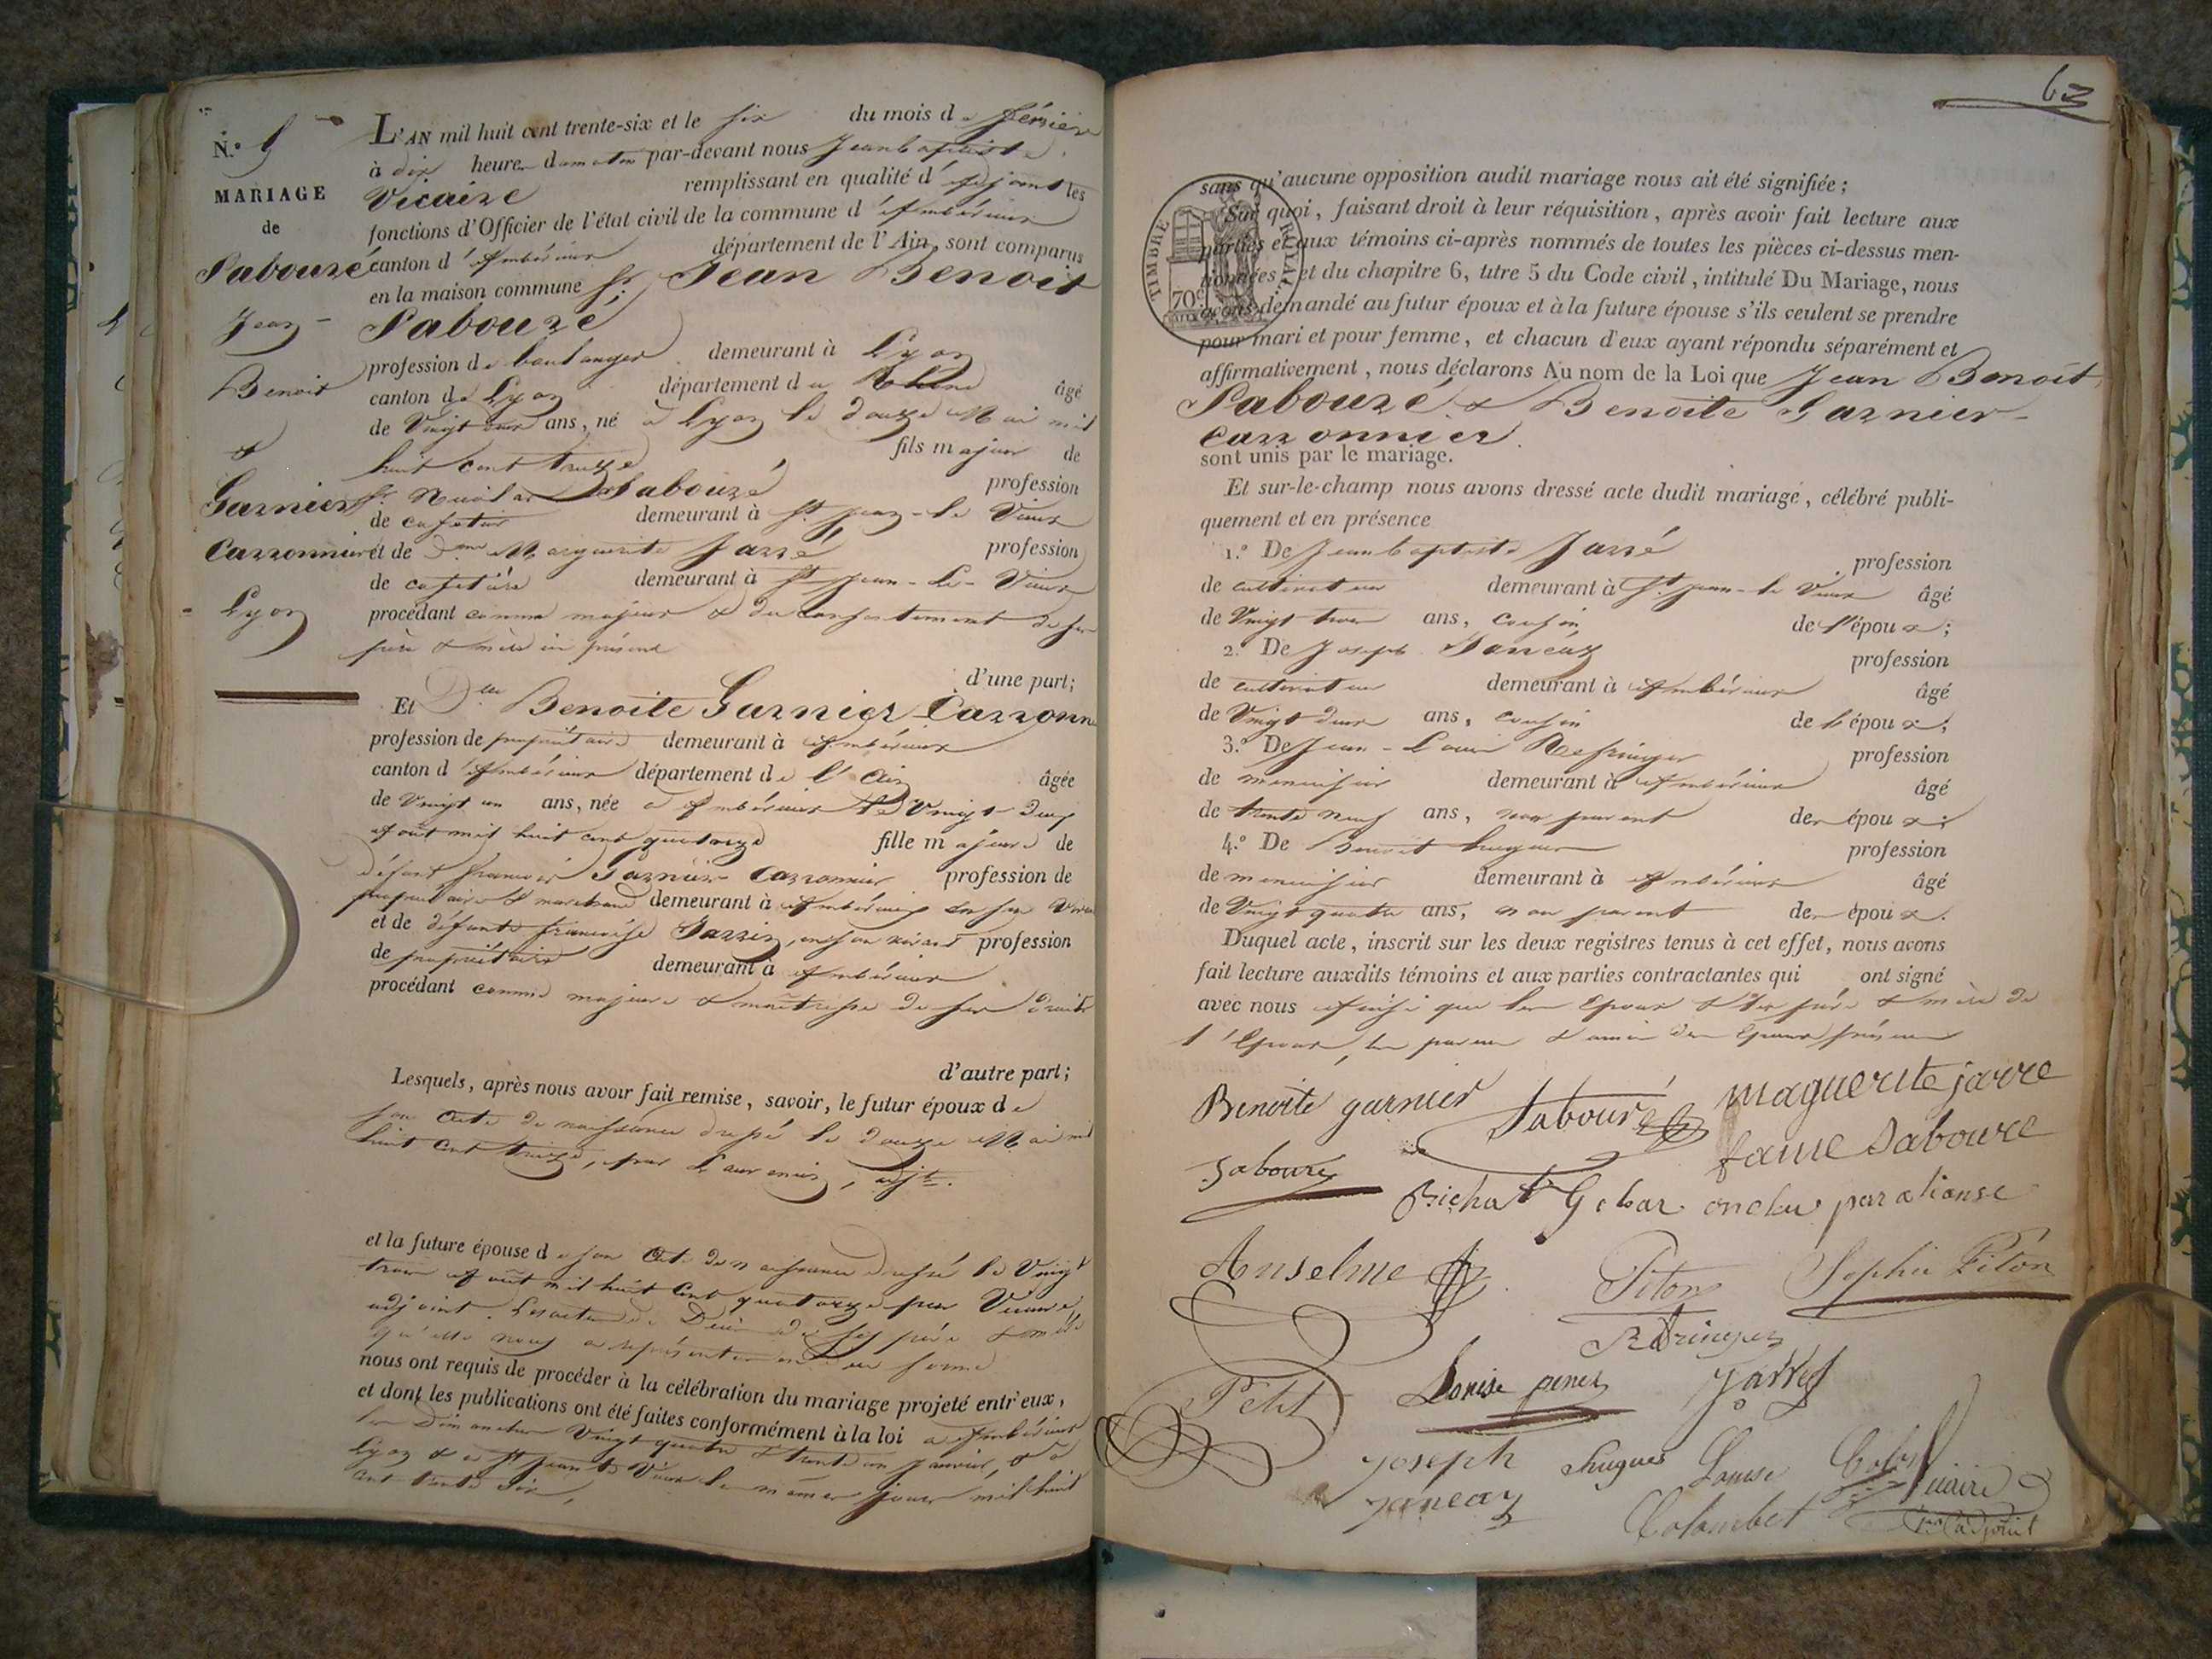 N.° 5
MARIAGE
de
Sabouré
Jean
Benoit
&
Garnier
Carronnier
Lyon
L'AN mil huit cent trente-six et le six du mois de février
à dix heures du matin par-devant nous Jean baptiste
Vicaire remplissant en qualité d'adjoint les
fonctions d'Officier de l'état civil de la commune d'Ambérieux
canton d'Ambérieux département de l'Ain, sont comparus
en la maison commune Sr. Jean Benoit
Sabouré
profession de boulanger demeurant à Lyon
canton de Lyon département du Rhône âgé
de Vingt deux ans, né à Lyon le douze Mai mil
huit cent treize fils majeur de
Sr. Nicolas Sabouré profession
de cafetier demeurant à St. jean-le Vieux
et de dme Marguerite Jarré profession
de cafetière demeurant à St. Jean-le-Vieux
procédant comme majeur & du consentement de ses
père & mère ici présens
d'une part;
Et Dlle Benoite Garnier Carronn
profession de propriétaire demeurant à Ambérieux
canton d'Ambérieux département de l'Ain âgée
de Vingt un ans, née à Ambérieux le Vingt-deux
aout mil huit cent quatorze fille majeure de
défunt françois Garnier Carronnier profession de
propriétaire & marchand demeurant à Ambérieux
et de défunte françoise Sarrin, en son vivant profession
de propriétaire demeurant à Ambérieux
procédant comme majeure & maitresse de ses droits
d'autre part;
Lesquels, après nous avoir fait remise, savoir, le futur époux de
son acte de naissance dressé le douze Mai mil
huit cent treize, par adjt.
et la future épouse de son acte de naissance dressé le Vingt
trois aout mil huit cent quatorze par Vicaire,
adjoint. Les actes de Décès de ses père & mère
qu'elle nous a représentés en forme
nous ont requis de procéder à la célébration du mariage projeté entr'eux,
et dont les publications ont été faites conformément à la loi à Ambérieux
les Dimanches Vingt quatre & trente un Janvier, & à
Lyon & à St Jean le Vieux les mêmes jours mil huit
cent trente six,
63
TIMBRE ROYAL
70c
sans qu'aucune opposition audit mariage nous ait été signifiée;
Sur quoi, faisant droit à leur réquisition, après avoir fait lecture aux
parties et aux témoins ci-après nommés de toutes les pièces ci-dessus men-
tionnées, et du chapitre 6, titre 5 du Code civil, intitulé Du Mariage, nous
avons demandé au futur époux et à la future épouse s'ils veulent se prendre
pour mari et pour femme, et chacun d'eux ayant répondu séparément et
affirmativement, nous déclarons Au nom de la Loi que Jean Benoit
Sabouré & Benoite Garnier-
Carronnier
sont unis par le mariage.
Et sur-le-champ nous avons dressé acte dudit mariage, célébré publi-
quement et en présence
1.° De Jean baptiste Jarré profession
de cultivateur demeurant à St. jean-le Vieux âgé
de Vingt trois ans, cousin de l'époux;
2.° De Joseph Janéaz profession
de cultivateur demeurant à Ambérieux âgé
de Vingt deux ans, cousin de l'époux;
3.° De Jean-Louis Refringer profession
de menuisier demeurant à Ambérieux âgé
de trente neuf ans, non parent des époux;
4.° De Benoit hugues profession
de menuisier demeurant à Ambérieux âgé
de Vingt quatre ans, non parent des époux.
Duquel acte, inscrit sur les deux registres tenus à cet effet, nous avons
fait lecture auxdits témoins et aux parties contractantes qui ont signé
avec nous Ainsi que les Epoux & les père & mère de
l'Epoux, les parens & amis des Epoux présens
Benoite garnier Sabouré Maguerite jarre
Sabouré fame Saboure
Bichat Gobar oncle par alianse
Anselme Piton Sophie Piton
Refringer
Petit Louise genez Jarré
Joseph hugues Louise
Janeaz Colombet Vicaire
adjoint